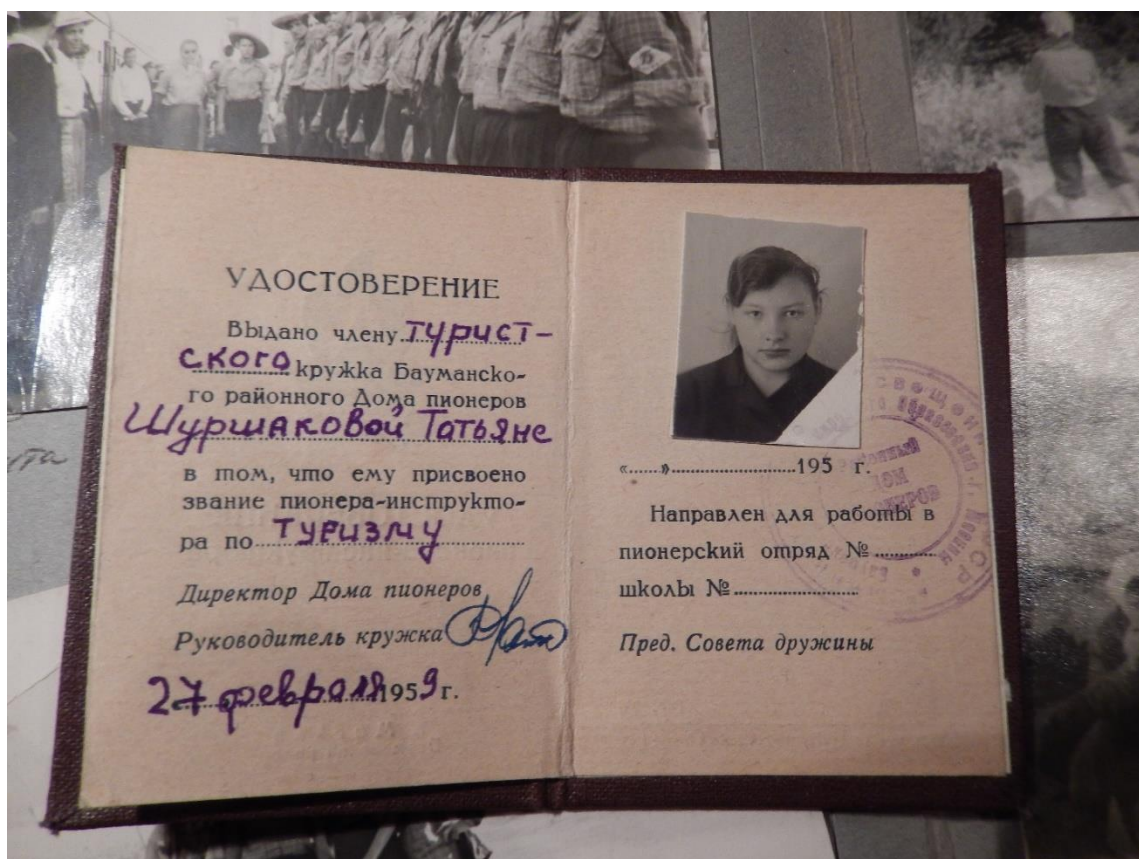 УДОСТОВЕРЕНИЕ
Выдано члену турист-
ского кружка Бауманско-
го районного Дома пионеров
Шуршаковой Татьяне
в том, что ему присвоено
звание пионера-инструкто-
ра по туризму
Директор Дома пионеров
Руководитель кружка
27 февраля 1959 г.
«......»......................195 г.
Направлен для работы в
пионерский отряд № ............
школы № ........................
Пред. Совета дружины
ДОМ